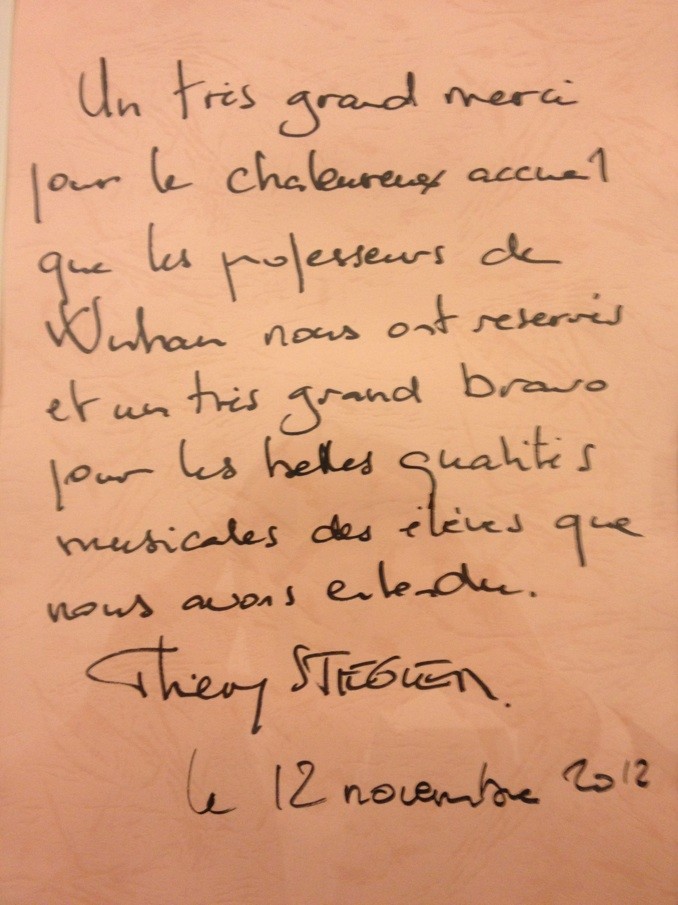 Un très grand merci
pour le chaleureux accueil
que les professeurs de
Wuhan nous ont reservés
et un très grand bravo
pour les belles qualités
musicales des élèves que
nous avons entendu.
Thierry STIEGLER.
le 12 novembre 2012